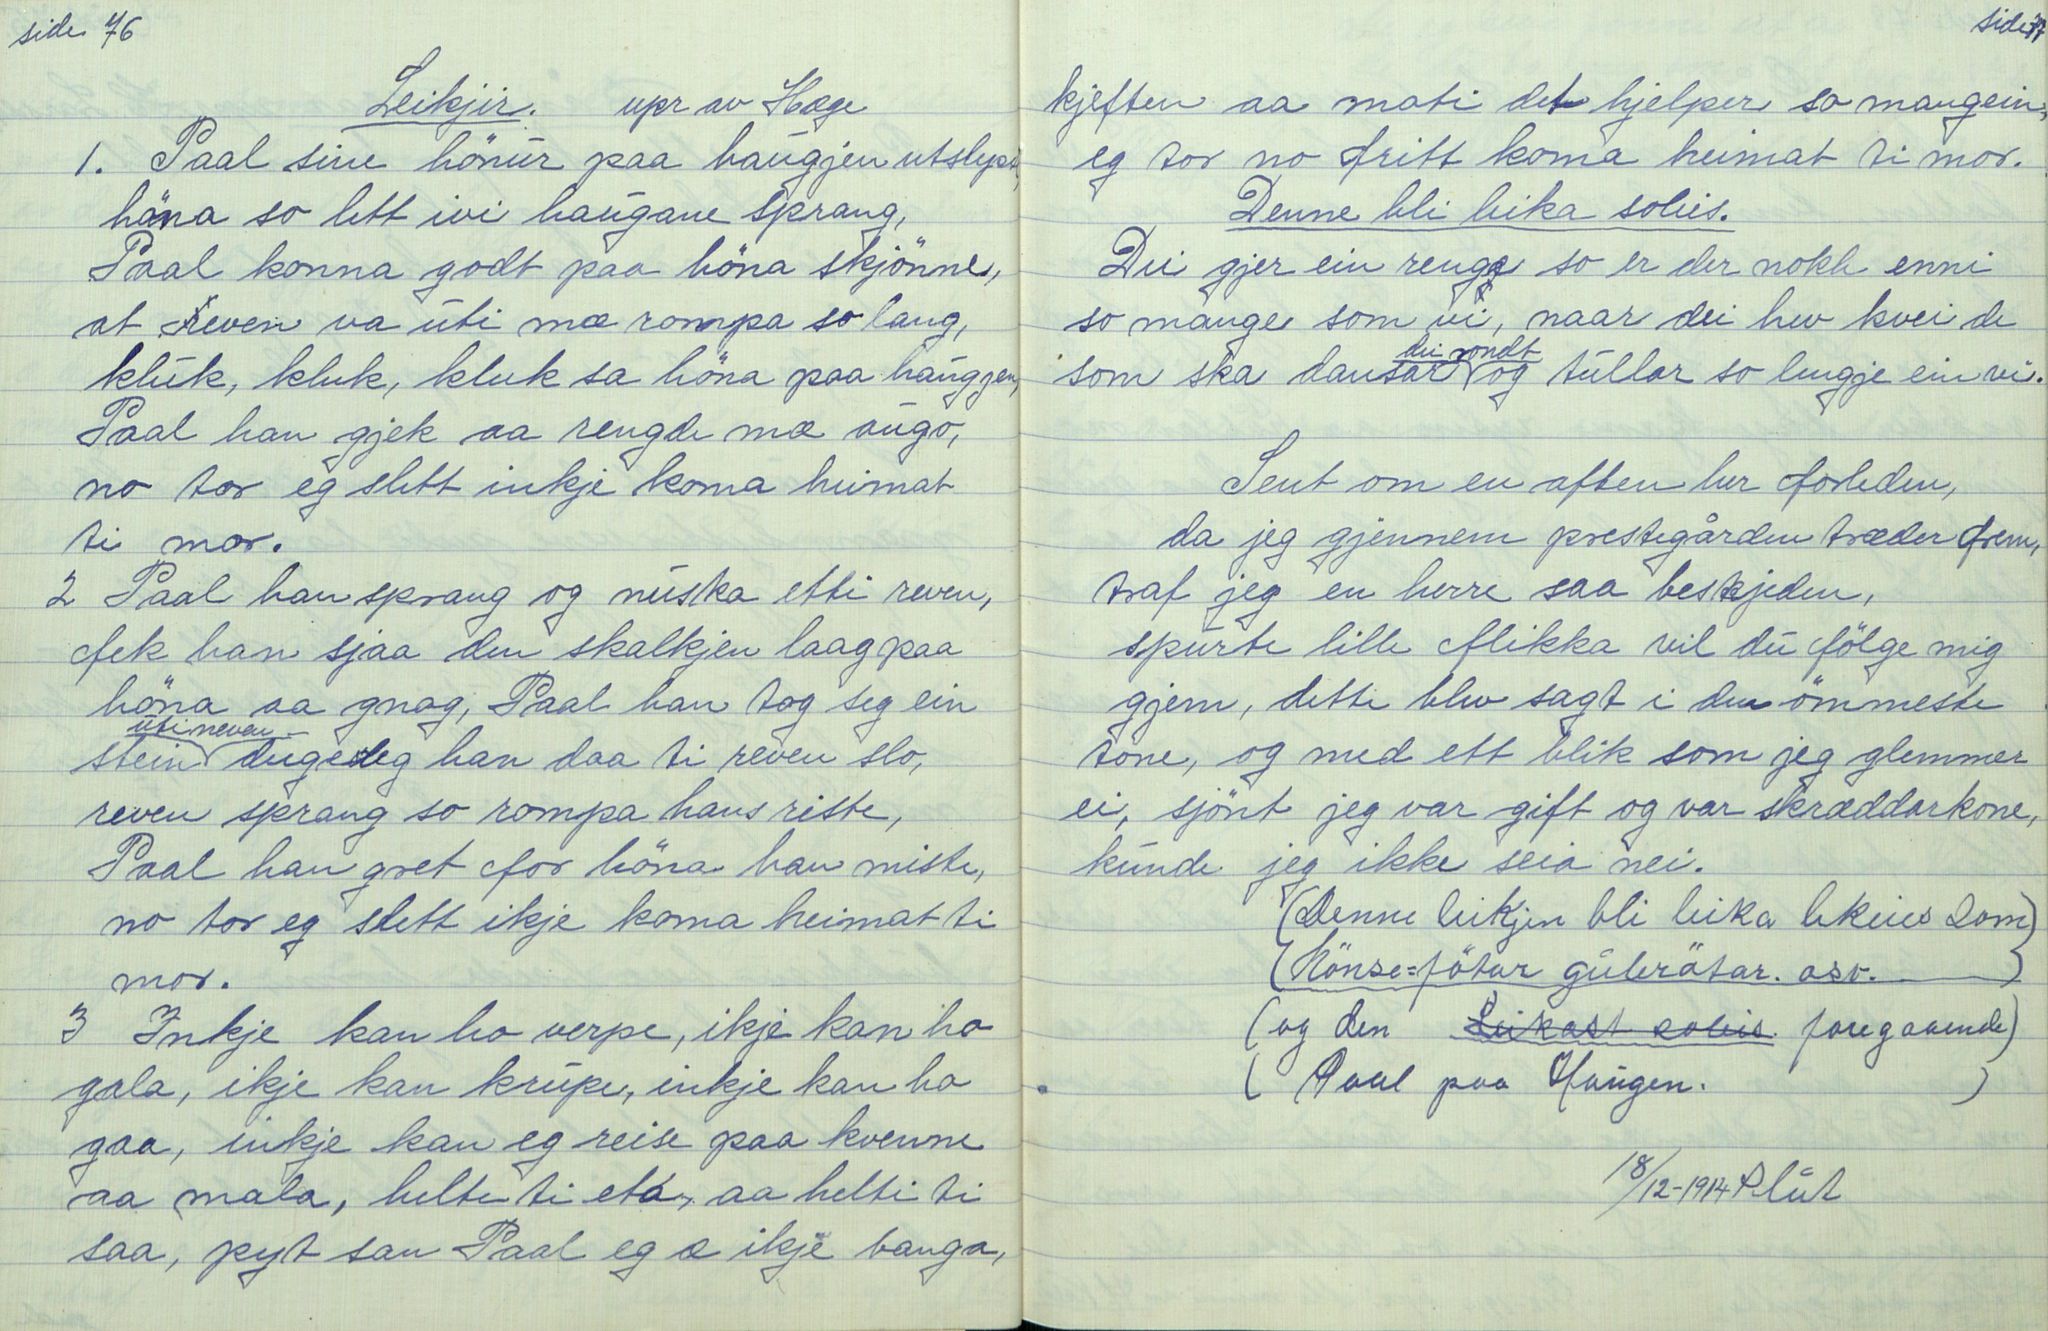 side 76
Leikjir. upr av Hæge
1. Paal sine hönur paa haugjen utslepte,
höna so lett ivi haugane sprang,
Paal konna godt paa höna skjönne,
at reven va uti mæ rompa so lang,
kluk, kluk, kluk sa höna paa haugjen,
Paal han gjek aa rengde mæ augo,
no tor eg slett inkje koma heimat
ti mor.
2 Paal han sprang og nuska etti reven,
fek han sjaa den skalkjen laag paa
höna aa gnag, Paal han tog seg ein
uti neven
stein dugeleg han daa ti reven slo,
reven sprang so rompa hans riste,
Paal han gret for höna han miste,
no tor eg slett ikje koma heimat ti
mor.
3 Inkje kan ho verpe, ikje kan ho
gala, ikje kan krupe, inkje kan ho
gaa, inkje kan eg reise paa kvenne
aa mala, helte ti eta, aa helti ti
saa, pyt san Paal eg æ ikje banga,
side 77
kjeften aa moti det hjelper so mangein,
eg tor no fritt koma heimat ti mor.
Denne bli leika soleis.
Dei gjer ein renge so er der nokk enni
so mange som vi, naar dei hev kvei de
dei rondt
som ska dansar og tullar so lengje ein vi.
Sent om en aften her forleden,
da jeg gjennem prestegården træder frem,
traf jeg en herre saa beskjeden,
spurte lille flikka vil du fölge mig
gjem, dette blev sagt i den ömmeste
tone, og med ett blik som jeg glemmer
ei, sjönt jeg var gift og var skræddarkone,
kunde jeg ikke seia nei.
(Denne leikjen bli leika lekeies som)
(Hönse=fötar gulerötar. osv.)
(og den Leikast soleis foregaaende)
(Paal paa Haugen.)
18/12-1914 Slút